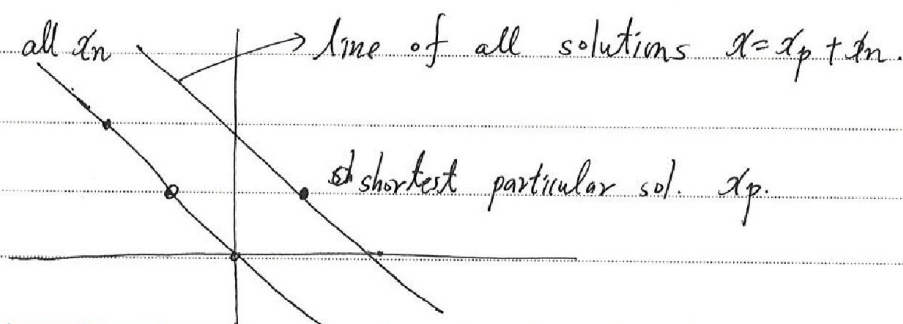 all xn
line of all solutions x = xp + xn.
shortest particular sol. xp.